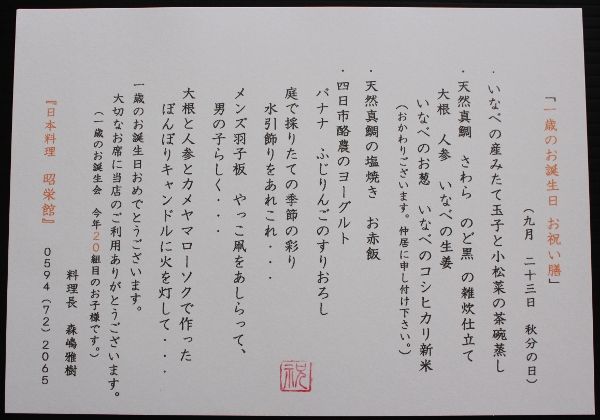 「一歳のお誕生日　お祝い膳」
（九月　二十三日　秋分の日）
・いなべの産みたて玉子と小松菜の茶碗蒸し
・天然真鯛　さわら　のど黒 の雑炊仕立て
大根　人参　いなべの生姜
いなべのお葱　いなべのコシヒカリ新米
（おかわりございます。仲居に申し付け下さい。）
・天然真鯛の塩焼き　お赤飯
・四日市酪農のヨーグルト
バナナ　ふじりんごのすりおろし
庭で採りたての季節の彩り
水引飾りをあれこれ・・・
メンズ羽子板　やっこ凧をあしらって、
男の子らしく・・・
大根と人参とカメヤマローソクで作った
ぼんぼりキャンドルに火を灯して・・・
一歳のお誕生日おめでとうございます。
大切なお席に当店のご利用ありがとうございます。
（一歳のお誕生会　今年２０組目のお子様です。）
料理長　森嶋雅樹
『日本料理　昭栄館』　０５９４（７２）２０６５
祝